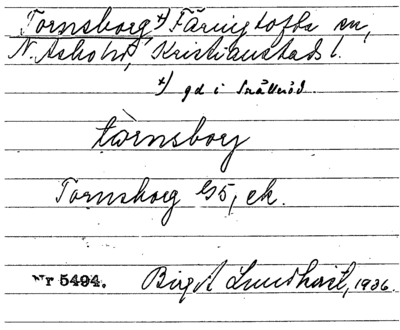 Tornsborg +) Färingtofta sn,
N. Åsbo hd, Kristianstads l.
+) gd i Snälleröd.
tòrnsborg
Tornsborg G5, ek.
Nr 5494. Birgit Lundkvist, 1936.